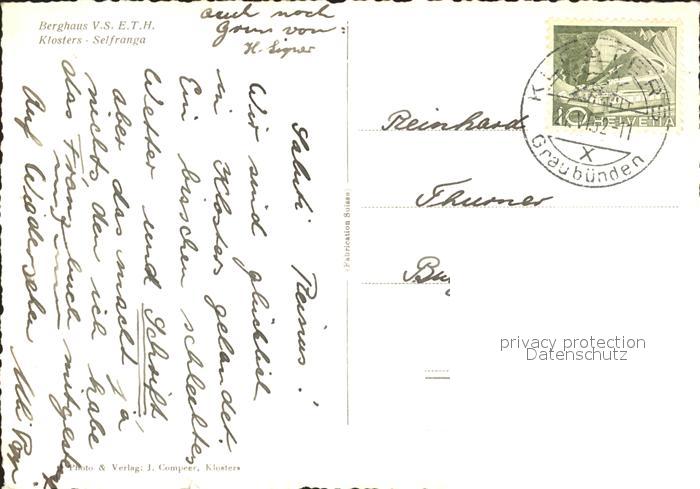 Berghaus V.S. E.T.H.
Klosters - Selfranga
auch noch
Gruss von:
H. Signer
Salut Reinus!
Wir sind glücklich
in Klosters gelandet.
Ein bisschen schlechtes
Wetter und Schrift
aber das macht ja
nichts, den ich habe
das Franzbuch mitgenommen
Auf Wiedersehn
Photo & Verlag: J. Compeer, Klosters
(Fabrication Suisse)
10 HELVETIA
Graubünden
Reinhard
Thurner
privacy protection
Datenschutz